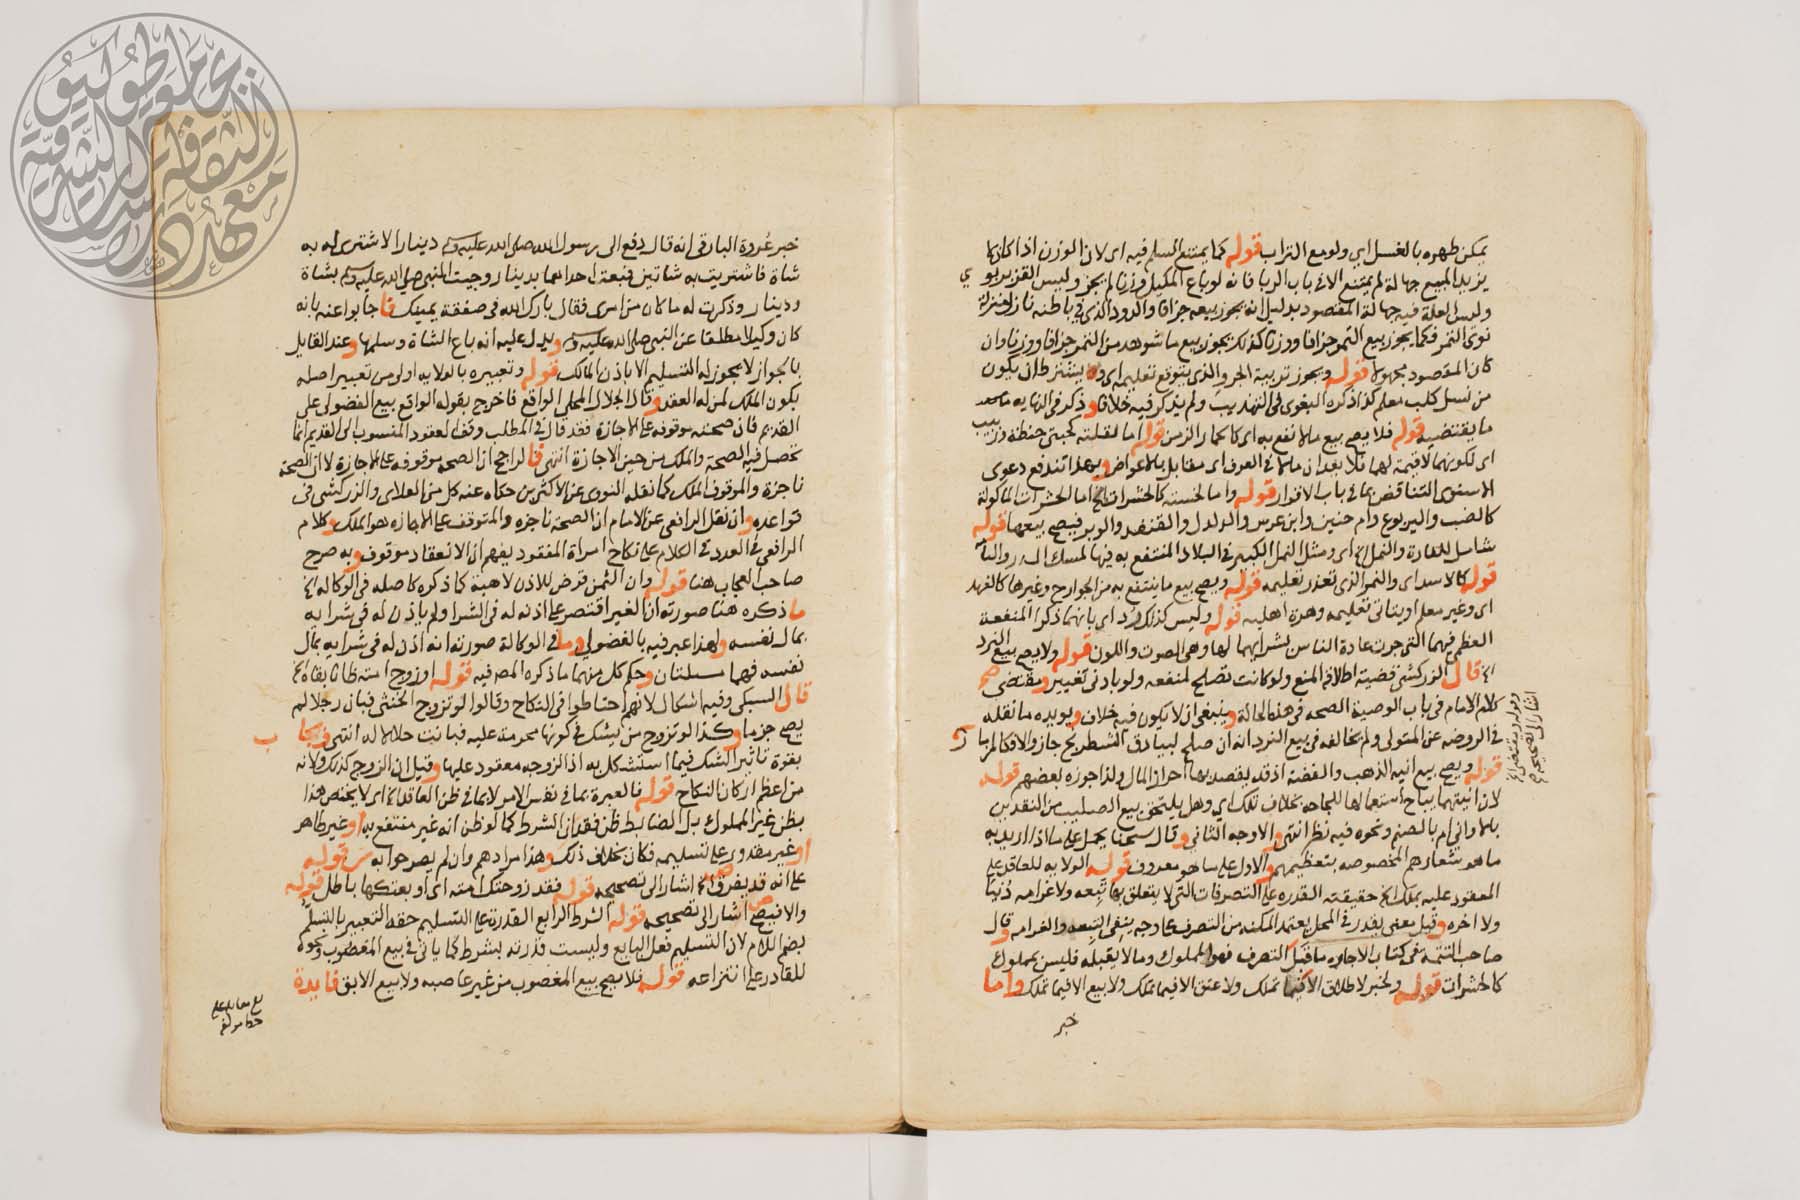 يمكن طهره بالغسل اي ولو مع التراب قوله كما يمتنع السلم فيه اي لان الوزن اذا كان
يزيد المبيع جهالة لم يمتنع الا في باب الربا فانه لو باع المكيل وزنا لم يجز وليس
وليس العلة فيه جهالة المقصود بدليل انه يجوز بيعه جزافا والدود الذي في باطنه نازل منزلة
نوى التمر فكما يجوز بيع التمر جزافا ووزنا كذلك يجوز بيع ما شوهد من التمر جزافا ووزنا وان
كان المقصود مجهولا قوله ويجوز تربية الجرو الذي يتوقع تعليمه اي يشترط ان يكون
من نسل كلب معلم كذا ذكره البغوي في التهذيب ولم يذكر فيه خلافا وذكر في النهاية ما
ما يقتضيه قوله فلا يصح بيع ما لا نفع به اي كالحمار الزمن قوله اما لقلته كحبتي حنطة وزبيب
اي لكونهما لا قيمة لهما فلا يعدان مالا في العرف اي مقابل بالاعواض وبهذا تندفع دعوى
الاسنوي التناقض بما في باب الاقرار قوله واما لخسته كالحشرات الخ اما الحشرات المأكولة
كالضب واليربوع وام حنين وابن عرس والدلدل والقنفد والوبر فيصح بيعها قوله
شامل للفارة والنمل الخ اي ومثل النمل الكبير في البلاد المنتفع به فيها لمسك
قوله كالاسد اي والنمر الذي تعذر تعليمه قوله ويصح بيع ما ينتفع به من الجوارح وغيرها كالفهد
اي وغير معلم او يتاتى تعليمه وهرة اهلية قوله وليس كذلك ورد اي بانهما ذكرا المنفعة
العظمى فيهما التي جرت عادة الناس بشرائهما لها وهي الصوت واللون قوله ولا يصح بيع النرد
الخ قال الزركشي قضية اطلاقه المنع ولو كانت تصلح لمنفعة ولو بادنى تغيير ومقتضى صح
كلام الامام في باب الوصية الصحة في هذه الحالة وينبغي ان لا يكون فيه خلاف ويؤيده ما نقله
في الروضه عن المتولي ولم يخالفه في بيع النرد انه ان صلح لبيادق الشطرنج جاز والا فكالمزمار
قوله ويصح بيع انية الذهب والفضة اذ قد يقصد بها احراز المال ولذا جوزه بعضهم قوله
لان انيتهما يباح استعمالها للحاجه بخلاف تلك اي وهل يلتحق بيع الصليب من النقدين
بالاواني ام بالصنم ونحوه فيه نظر انتهى والاوجه الثاني وقال شيخنا يحمل على ما اذا اريد به
ما هو شعارهم المخصوصه بتعظيمهم والاول على ما هو معروف قوله الولاية للعاقد على
المعقود عليه بملك الخ حقيقته القدرة على التصرفات التي لا يتعلق بها تبعة ولا غرامة دنيا
ولا اخره وقيل معنى يقدر في المحل يعتمد المكنة من التصرف على وجه ينفي التبعة والغرامة وقال
صاحب التتمة في كتاب الاجارة ما قبل التصرف فهو المملوك وما لا يقبله فليس بمملوك
كالحشرات قوله ولخبر لا طلاق الا فيما تملك ولا عتق الا فيما تملك ولا بيع الا فيما تملك واما
خبر
اشار الى تصحيحه
وقوله ومقتضى الخ
خبر عروة البارقي انه قال دفع الي رسول الله صلى الله عليه وسلم دينارا لاشتري له به
شاة فاشتريت به شاتين فبعت احداهما بدينار وجيت النبي صلى الله عليه وسلم بشاة
ودينار وذكرت له ما كان من امري فقال بارك الله في صفقة يمينك فاجابوا عنه بانه
كان وكيلا مطلقا عن النبي صلى الله عليه وسلم ويدل عليه انه باع الشاة وسلمها وعند القايل
بالجواز لا يجوز له التسليم الا باذن المالك قوله وتعبيره بالولايه اولى من تعبير اصله
بكون الملك لمن له العقد وقال الجلال المحلي الواقع فاخرج بقوله الواقع بيع الفضولي على
القديم فان صحته موقوفه على الاجازة فقد قال في المطلب وقف العقود المنسوب الى القديم انما
تحصل فيه الصحة والملك من حين الاجازة انتهى فالراجح ان الصحه موقوفه على الاجازة لا ان الصحة
ناجزة والموقوف الملك كما نقله النووي عن الاكثرين حكاه عنه كل من العلائي والزركشي في
قواعده وان نقل الرافعي عن الامام ان الصحة ناجزه والمتوقف على الاجازه هو الملك وكلام
الرافعي في العدد في الكلام على نكاح امراة المفقود يفهم ان الانعقاد موقوف وبه صرح
صاحب العجاب هنا قوله وان الثمن قرض للاذن لا هبة كما ذكره كاصله في الوكاله الخ
ما ذكره هنا صورته ان الغير اقتصر على اذنه له في الشرا ولم ياذن له في شرايه
بمال نفسه ولهذا عبر فيه بالفضولي وما في الوكالة صورته انه اذن له في شرايه بمال
نفسه فهما مسئلتان وحكم كل منهما ما ذكره المص فيه قوله او زوج امته ظانا بقاه الخ
قال السبكي وفيه اشكال لانهم احتاطوا في النكاح وقالوا لو تزوج الخنثى فبان رجلا لم
يصح جزما وكذا لو تزوج من يشك في كونها محرمة عليه فبانت حلالا له انتهى وبجاب
بقوة تاثير الشك فيما استشكل به اذ الزوجه معقود عليها وقيل ان الزوج كذلك ولانه
من اعظم اركان النكاح قوله فالعبرة بما في نفس الامر لا بما في ظن العاقد الخ اي لا يختص هذا
بظن غير المملوك بل الضابط ظن فقدان الشرط كما لو ظن انه غير منتفع به او غير طاهر
او غير مقدور على تسليمه فكان بخلاف ذلك وهذا مرادهم وان لم يصرحوا به قوله
على انه قد يفرق الخ اشار الى تصحيحه قوله فقد زوجتك امته اي او بعتكها باطل قوله
والا فيصح اشار الى تصحيحه قوله الشرط الرابع القدرة على التسليم حقه التعبير بالتسلم
بضم اللام لان التسليم فعل البايع وليست قدرته بشرط كما ياتي في بيع المغصوب ونحوه
للقادر على انتزاعه قوله فلا يصح بيع المغصوب من غير غاصبه ولا بيع الابق فايدة
بلغ مقابلة على
خط مولفه